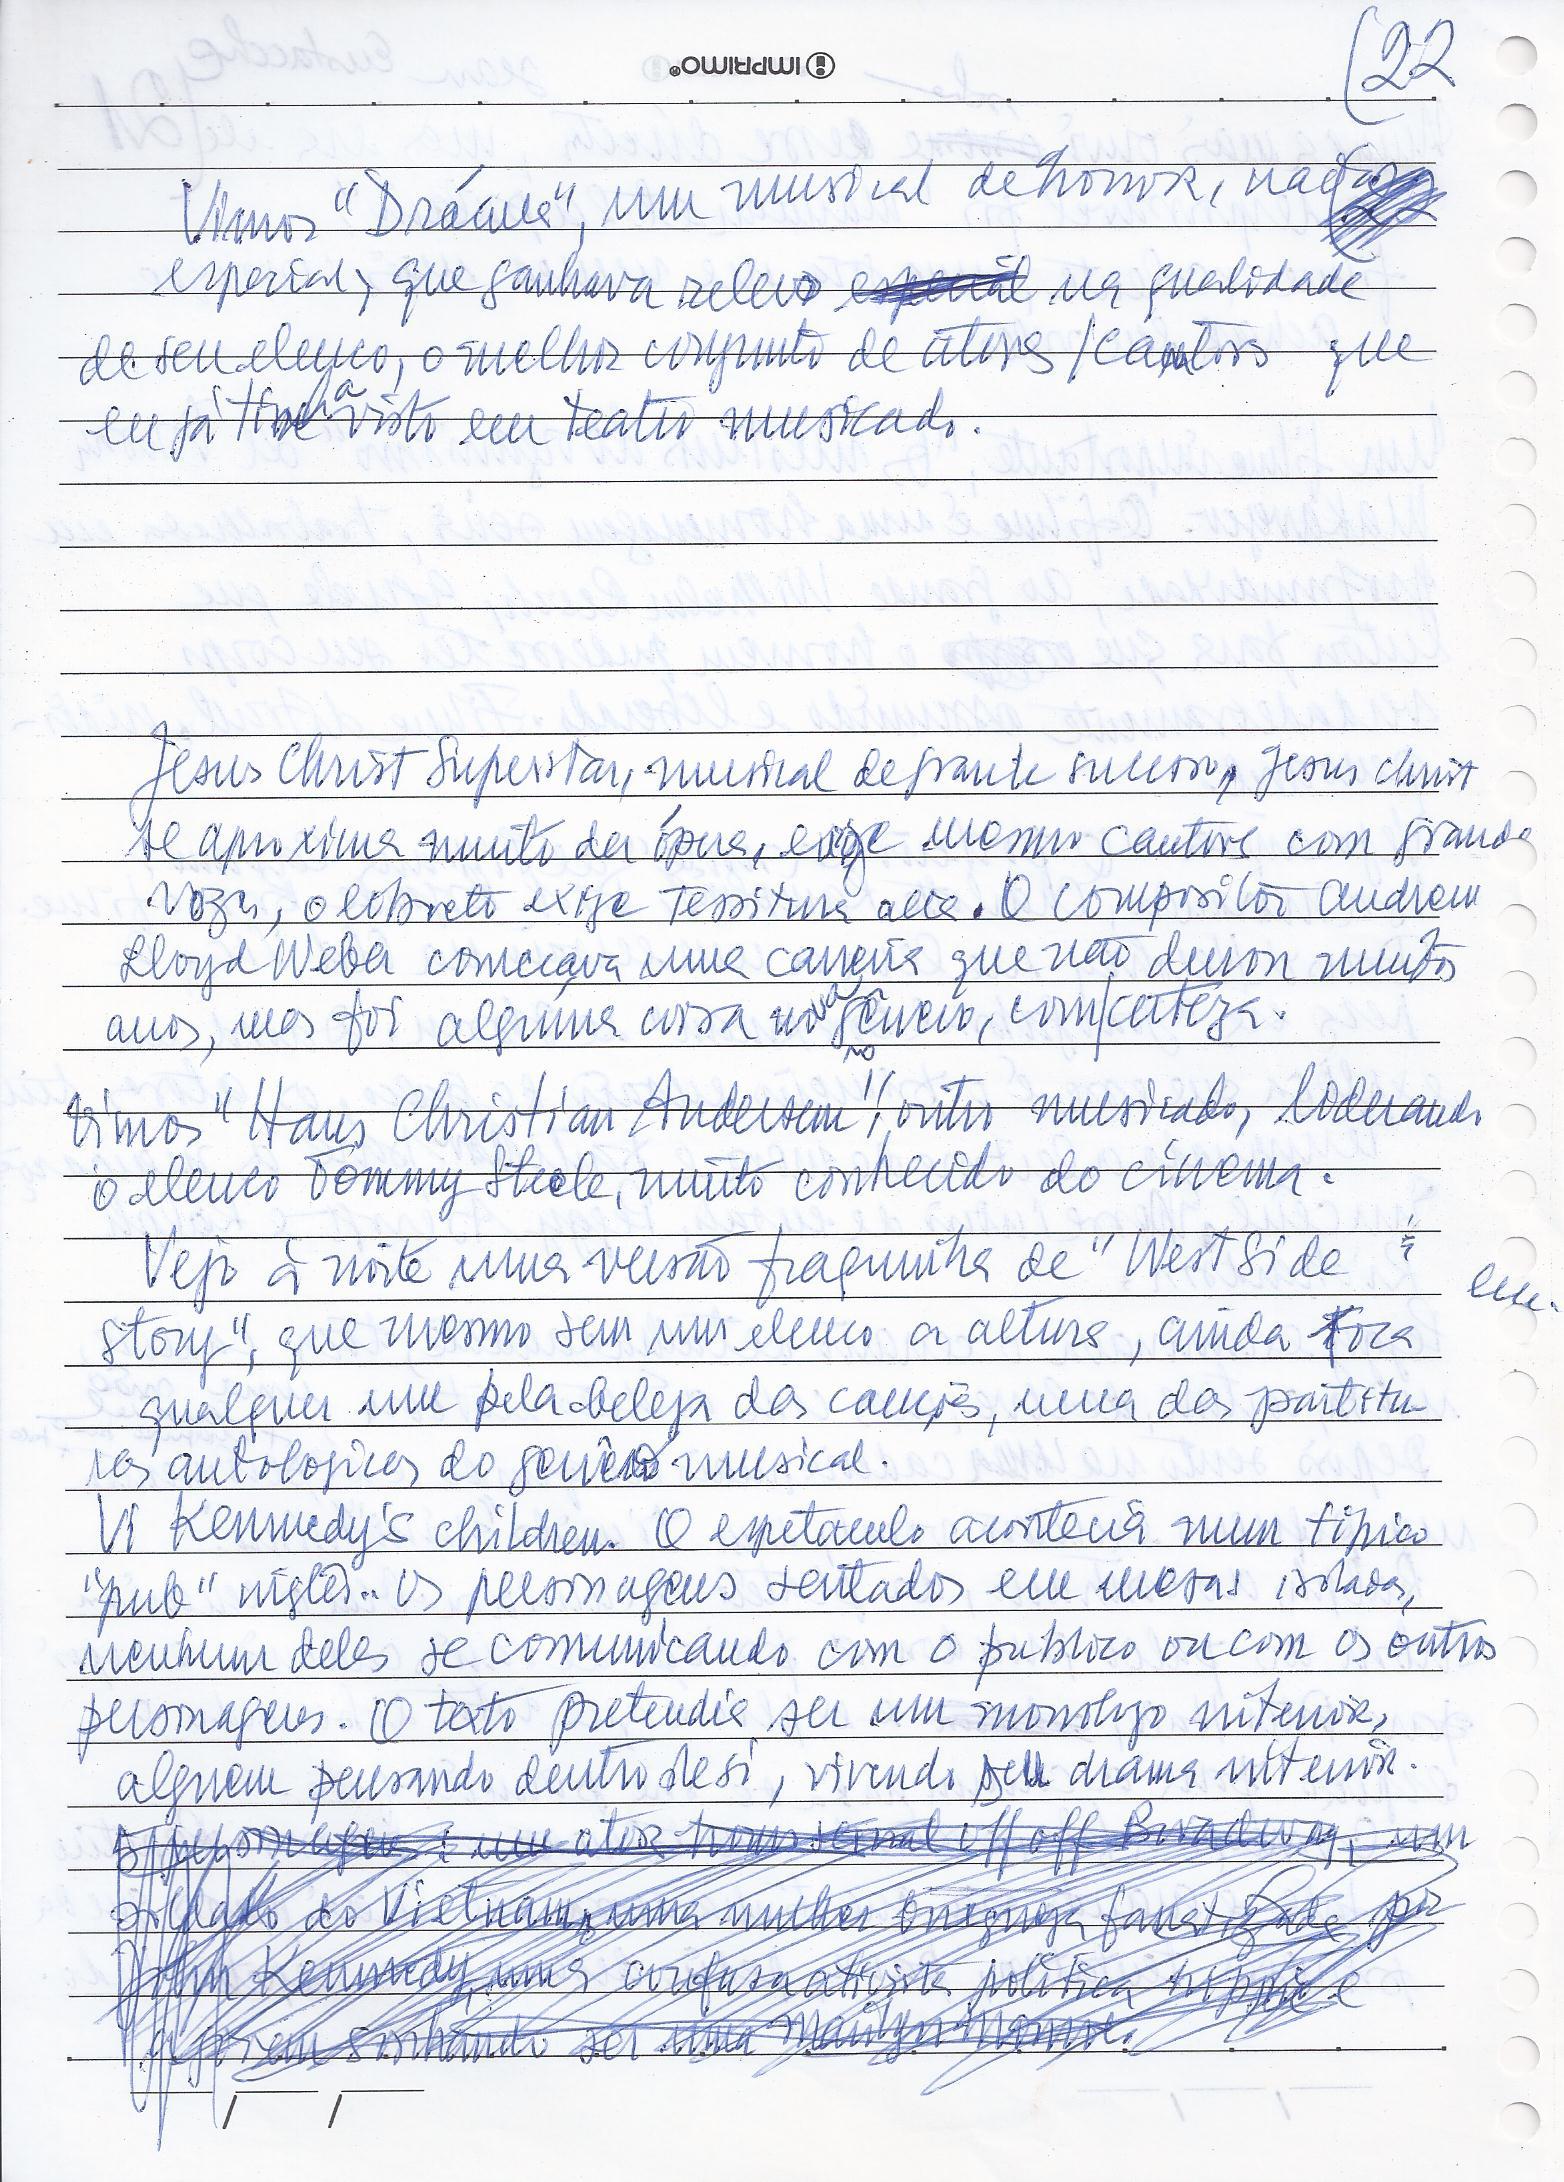 (22
IMPRIMO
Vimos "Drácula", um musical de horror, nada
especial, que ganhava relevo especial na qualidade
de seu elenco, o melhor conjunto de atores/cantores que
eu já tinha visto em teatro musicado.
Jesus Christ Superstar, musical de grande sucesso, Jesus Christ
se aproxima muito da ópera, exige mesmo cantores com grande
vozes, o libreto exige tessitura alta. O compositor Andrew
Lloyd Weber começava uma carreira que não durou muitos
anos, mas foi alguma coisa nova no gênero, com certeza.
Vimos "Hans Christian Andersen", outro musicado, liderando
o elenco Tommy Steele, muito conhecido do cinema.
Vejo à noite uma versão fraquinha de "West Side
em
Story", que mesmo sem um elenco a altura, ainda toca
qualquer um pela beleza das canções, uma das partitu
ras antologicas do genero musical.
Vi Kennedy's children. O espetaculo acontecia num tipico
"pub" inglês.. Os personagens sentados em mesas isoladas,
nenhum deles se comunicando com o publico ou com os outros
personagens. O texto pretendia ser um monologo interior,
alguem pensando dentro de si, vivendo seu drama interior.
personagens: um ator homossexual off off Broadway, um
soldado do Vietnam, uma mulher fanatizada por
John Kennedy, uma confusa ativista política hippie e
a jovem sonhando ser uma Marilyn Monroe.